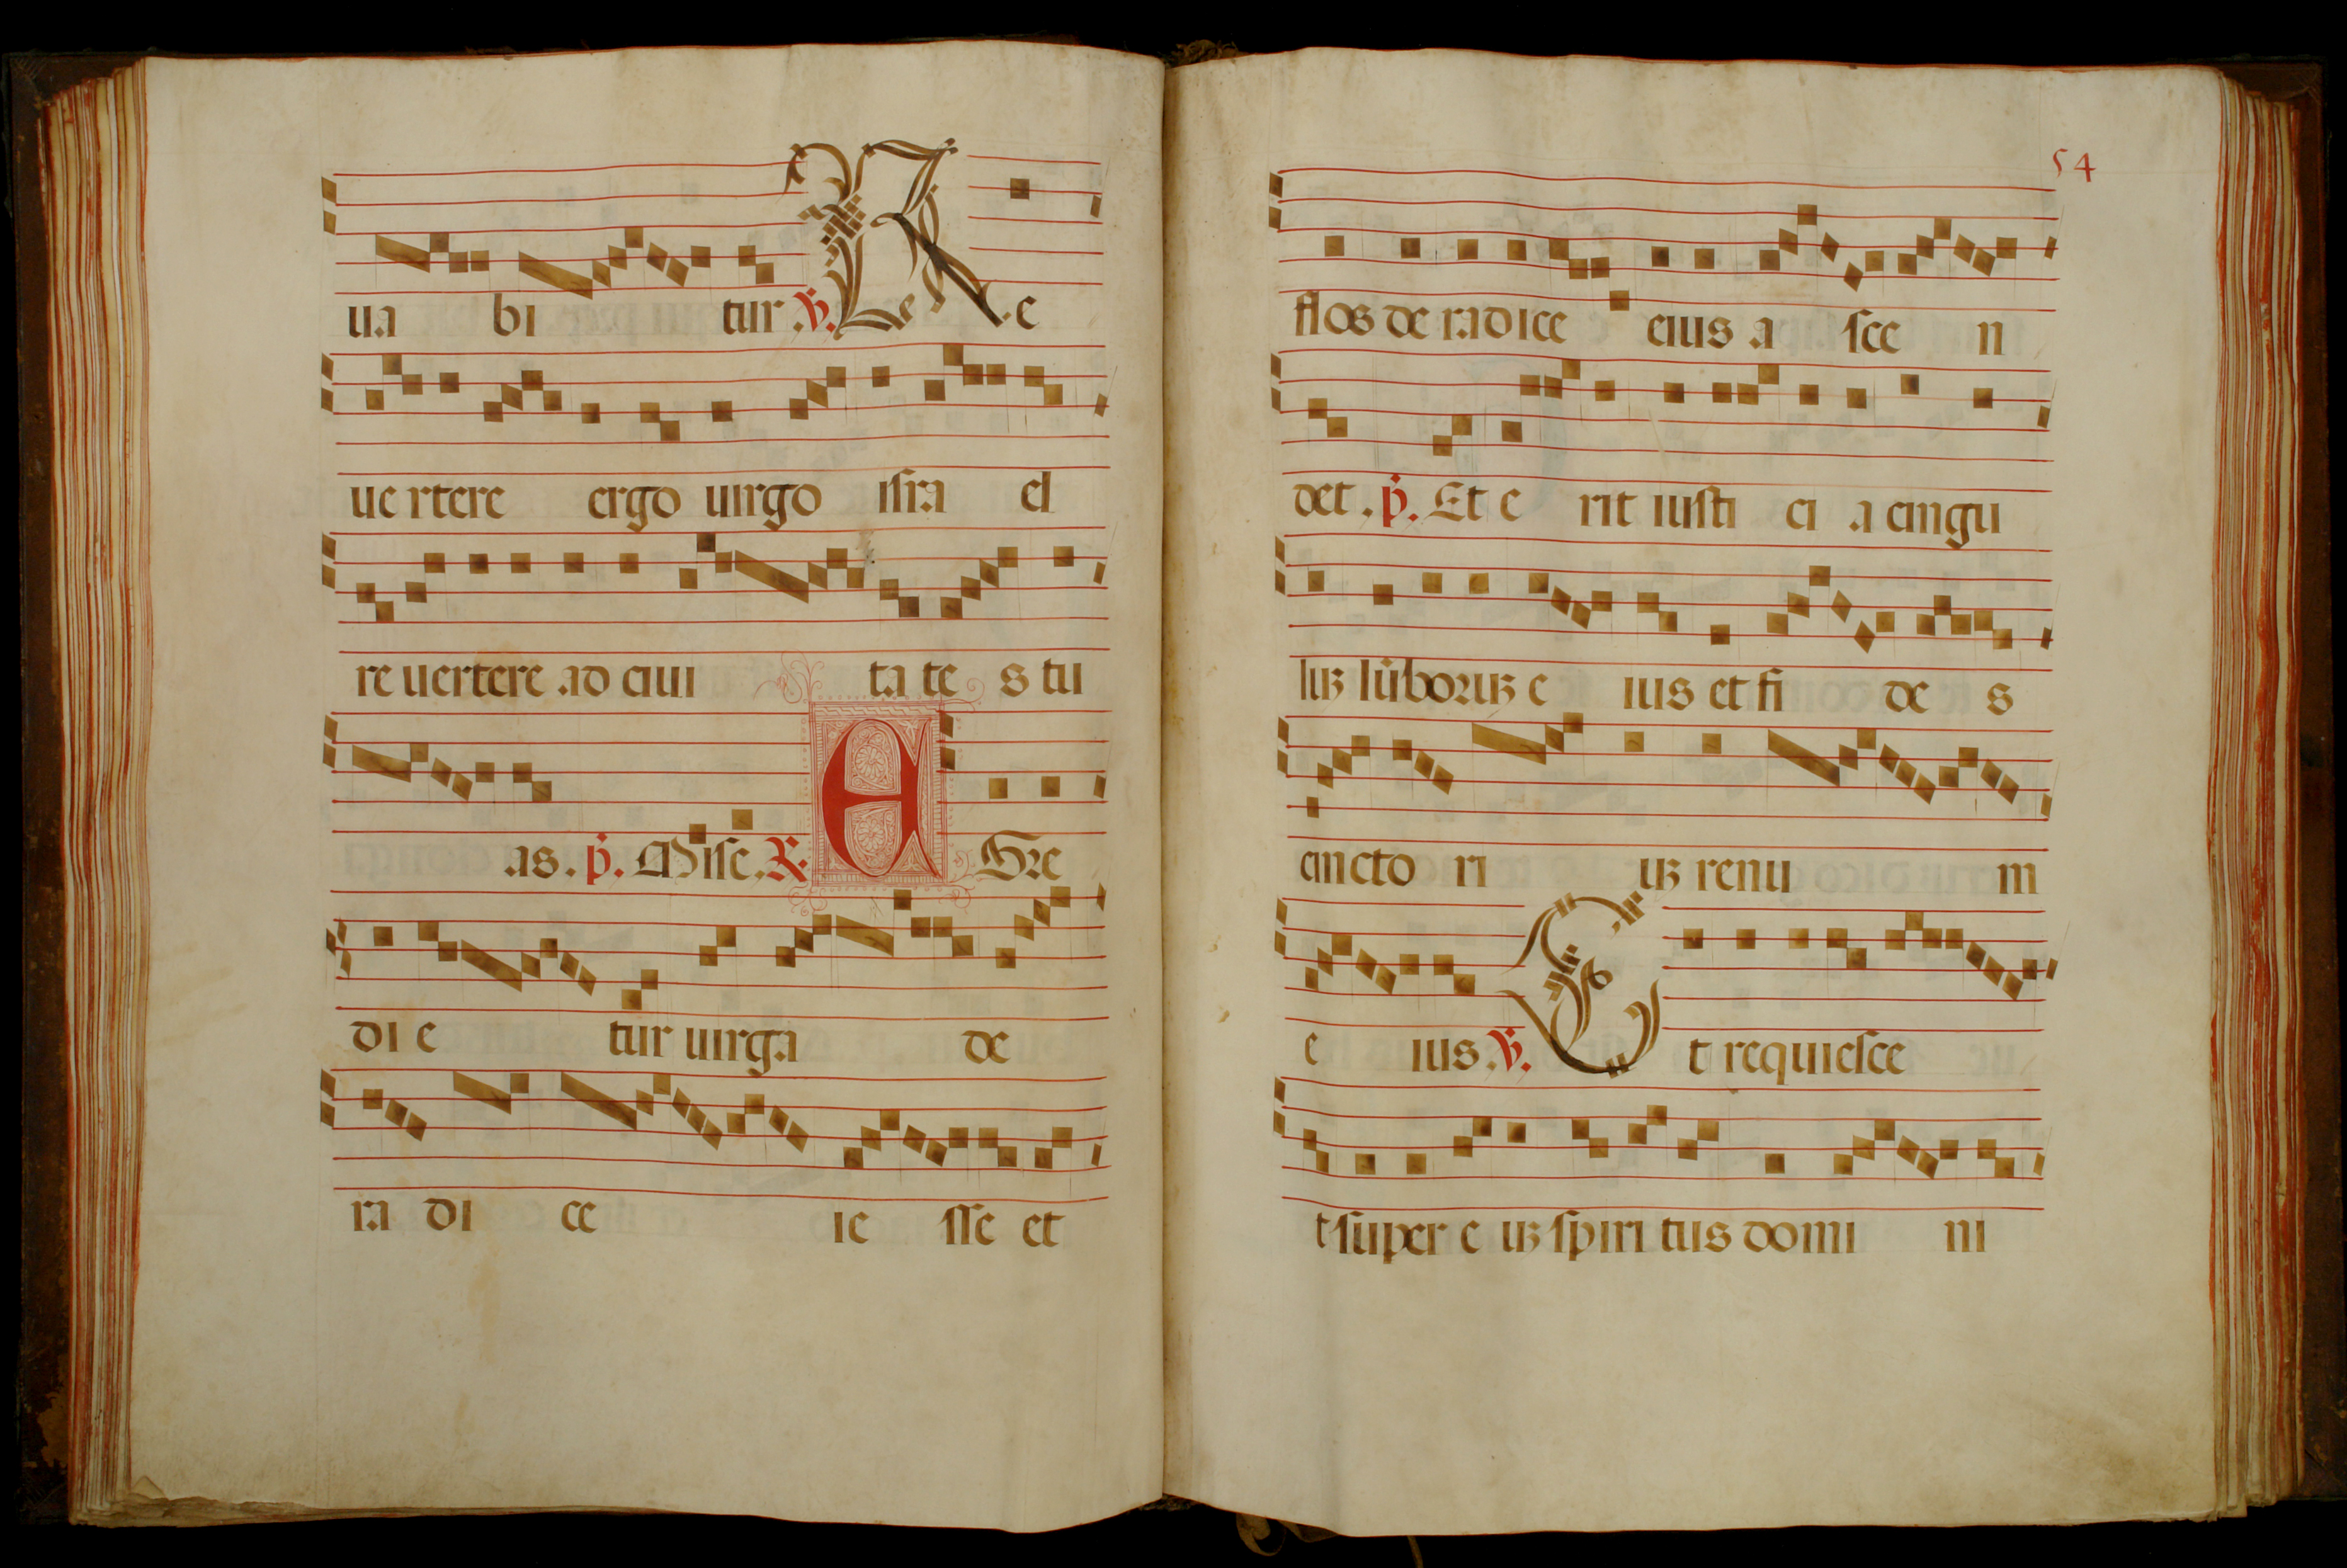 ua bi tur .℣. R e
ue rtere ergo uirgo isra el
re uertere ad ciui ta te s tu
as . p̔. Mise. ℟. E Gre
di e tur uirga de
ra di ce ie sse et
54
flos de radice eius a sce n
det . p̔. Et e rit iusti ci a cingu
luꝫ lūboruꝫ e ius et fi de s
cincto ri uꝫ renu m
e ius .℣. E t requiesce
t super e uꝫ spiri tus domi ni